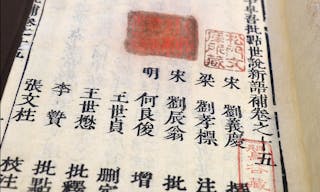 卓吾批點世說新語補卷之十五
宋 劉義慶
梁 劉孝標 注
宋 劉辰翁 批
明 何良俊 增
王世貞 刪定
王世懋 批釋
李贄 批點
張文柱 校注